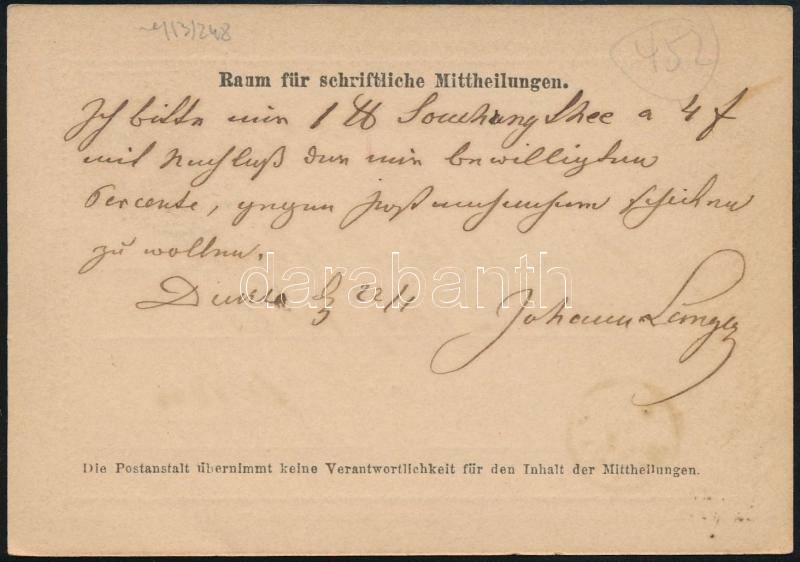 452
Raum für schriftliche Mittheilungen.
Ich bitte mir 1 ℔ Souchong Thee a 4 f
mit Nachlaß der mir bewilligten
Percente, gegen Postnachnahme schicken
zu wollen.
22/4
Johann Langer
darabanth
Die Postanstalt übernimmt keine Verantwortlichkeit für den Inhalt der Mittheilungen.